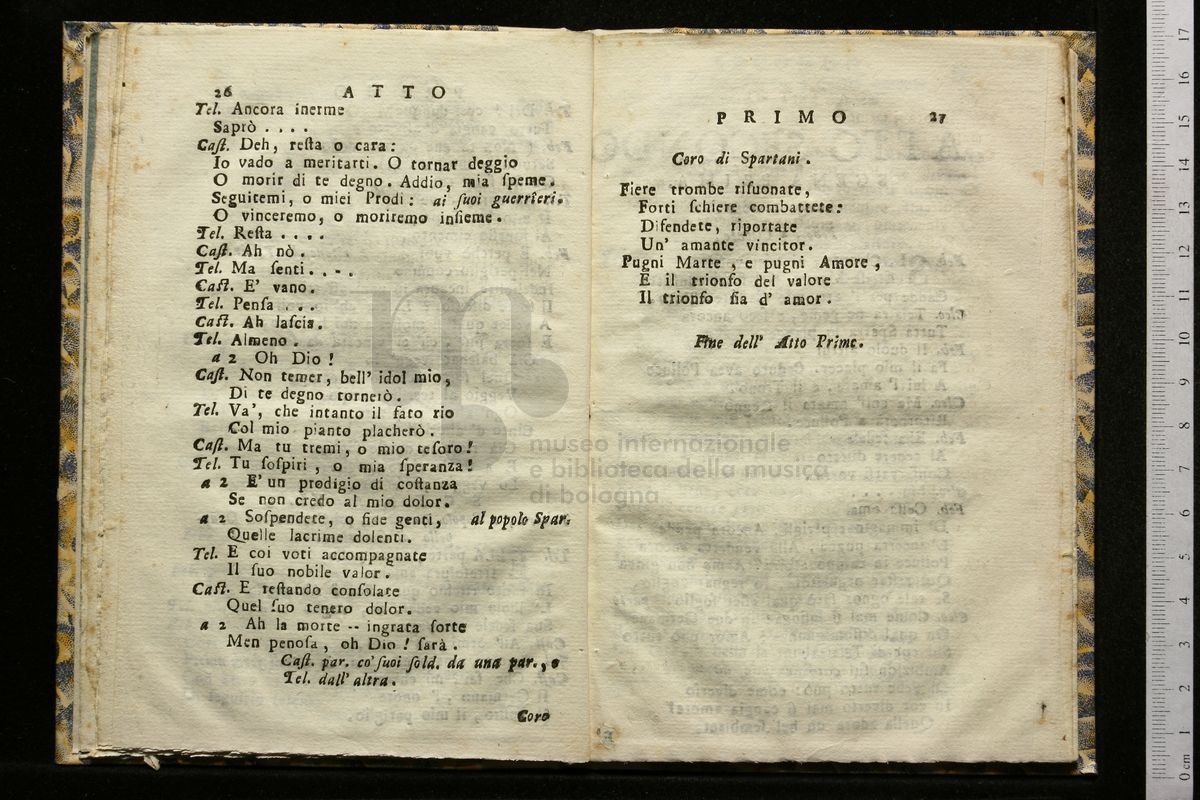 26 ATTO
Tel. Ancora inerme
Saprò . . . .
Caſt. Deh, reſta o cara:
Io vado a meritarti. O tornar deggio
O morir di te degno. Addio, mia ſpeme.
Seguitemi, o miei Prodi: ai ſuoi guerrieri.
O vinceremo, o moriremo inſieme.
Tel. Reſta . . . .
Caſt. Ah nò.
Tel. Ma ſenti. . - .
Caſt. E' vano.
Tel. Penſa . . .
Caſt. Ah laſcia.
Tel. Almeno.
a 2 Oh Dio!
Caſt. Non temer, bell' idol mio,
Di te degno tornerò.
Tel. Va', che intanto il fato rio
Col mio pianto placherò.
Caſt. Ma tu tremi, o mio teſoro!
Tel. Tu ſoſpiri, o mia ſperanza!
a 2 E' un prodigio di coſtanza
Se non credo al mio dolor.
a 2 Soſpendete, o fide genti, al popolo Spar.
Quelle lacrime dolenti.
Tel. E coi voti accompagnate
Il ſuo nobile valor.
Caſt. E reſtando conſolate
Quel ſuo tenero dolor.
a 2 Ah la morte -- ingrata ſorte
Men penoſa, oh Dio! ſarà.
Caſt. par. co' ſuoi ſold. da una par., e
Tel. dall' altra.
Coro
PRIMO 27
Coro di Spartani.
Fiere trombe riſuonate,
Forti ſchiere combattete:
Difendete, riportate
Un' amante vincitor.
Pugni Marte, e pugni Amore,
E il trionfo del valore
Il trionfo ſia d' amor.
Fine dell' Atto Primo.
museo internazionale
e biblioteca della musica
di bologna
0 cm 1 2 3 4 5 6 7 8 9 10 11 12 13 14 15 16 17